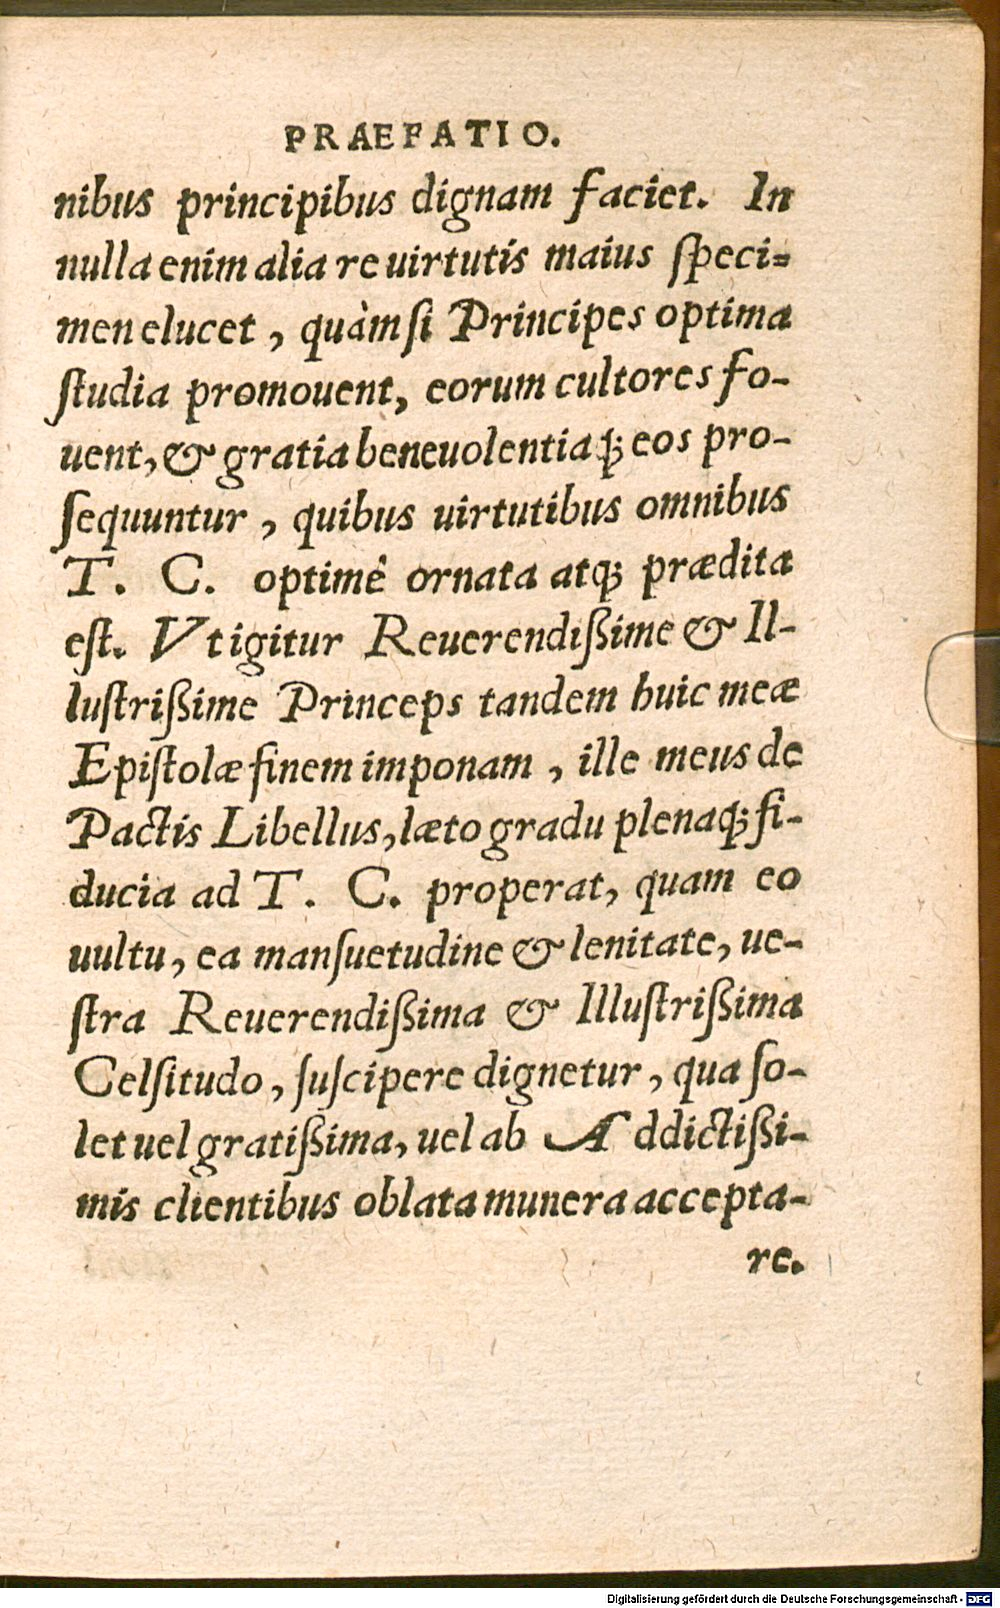 PRAEFATIO.
nibus principibus dignam faciet. In
nulla enim alia re uirtutis maius ſpeci=
men elucet, quàm ſi Principes optima
ſtudia promouent, eorum cultores fo-
uent, & gratia beneuolentiaꝗ; eos pro-
ſequuntur, quibus uirtutibus omnibus
T. C. optimè ornata atꝗ; prædita
eſt. Vt igitur Reuerendißime & Il-
luſtrißime Princeps tandem huic meæ
Epiſtolæ finem imponam, ille meus de
Pactis Libellus, læto gradu plenaꝗ; fi-
ducia ad T. C. properat, quam eo
uultu, ea manſuetudine & lenitate, ue-
ſtra Reuerendißima & Illuſtrißima
Celſitudo, ſuſcipere dignetur, qua ſo-
let uel gratißima, uel ab Addictißi-
mis clientibus oblata munera accepta-
re.
Digitalisierung gefördert durch die Deutsche Forschungsgemeinschaft - DFG